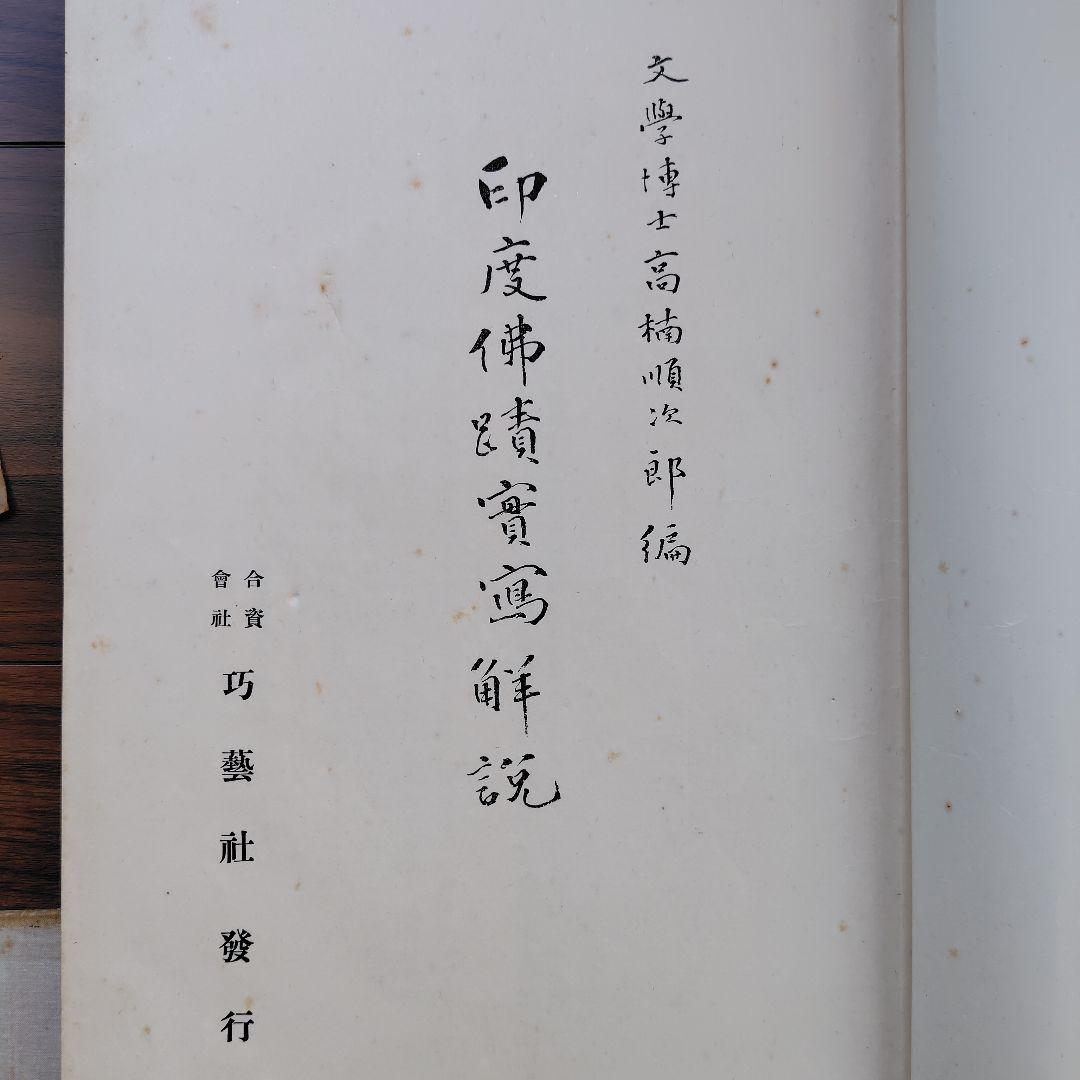 文學博士高楠順次郎編
印度佛蹟實寫解説
合資
會社
巧藝社發行